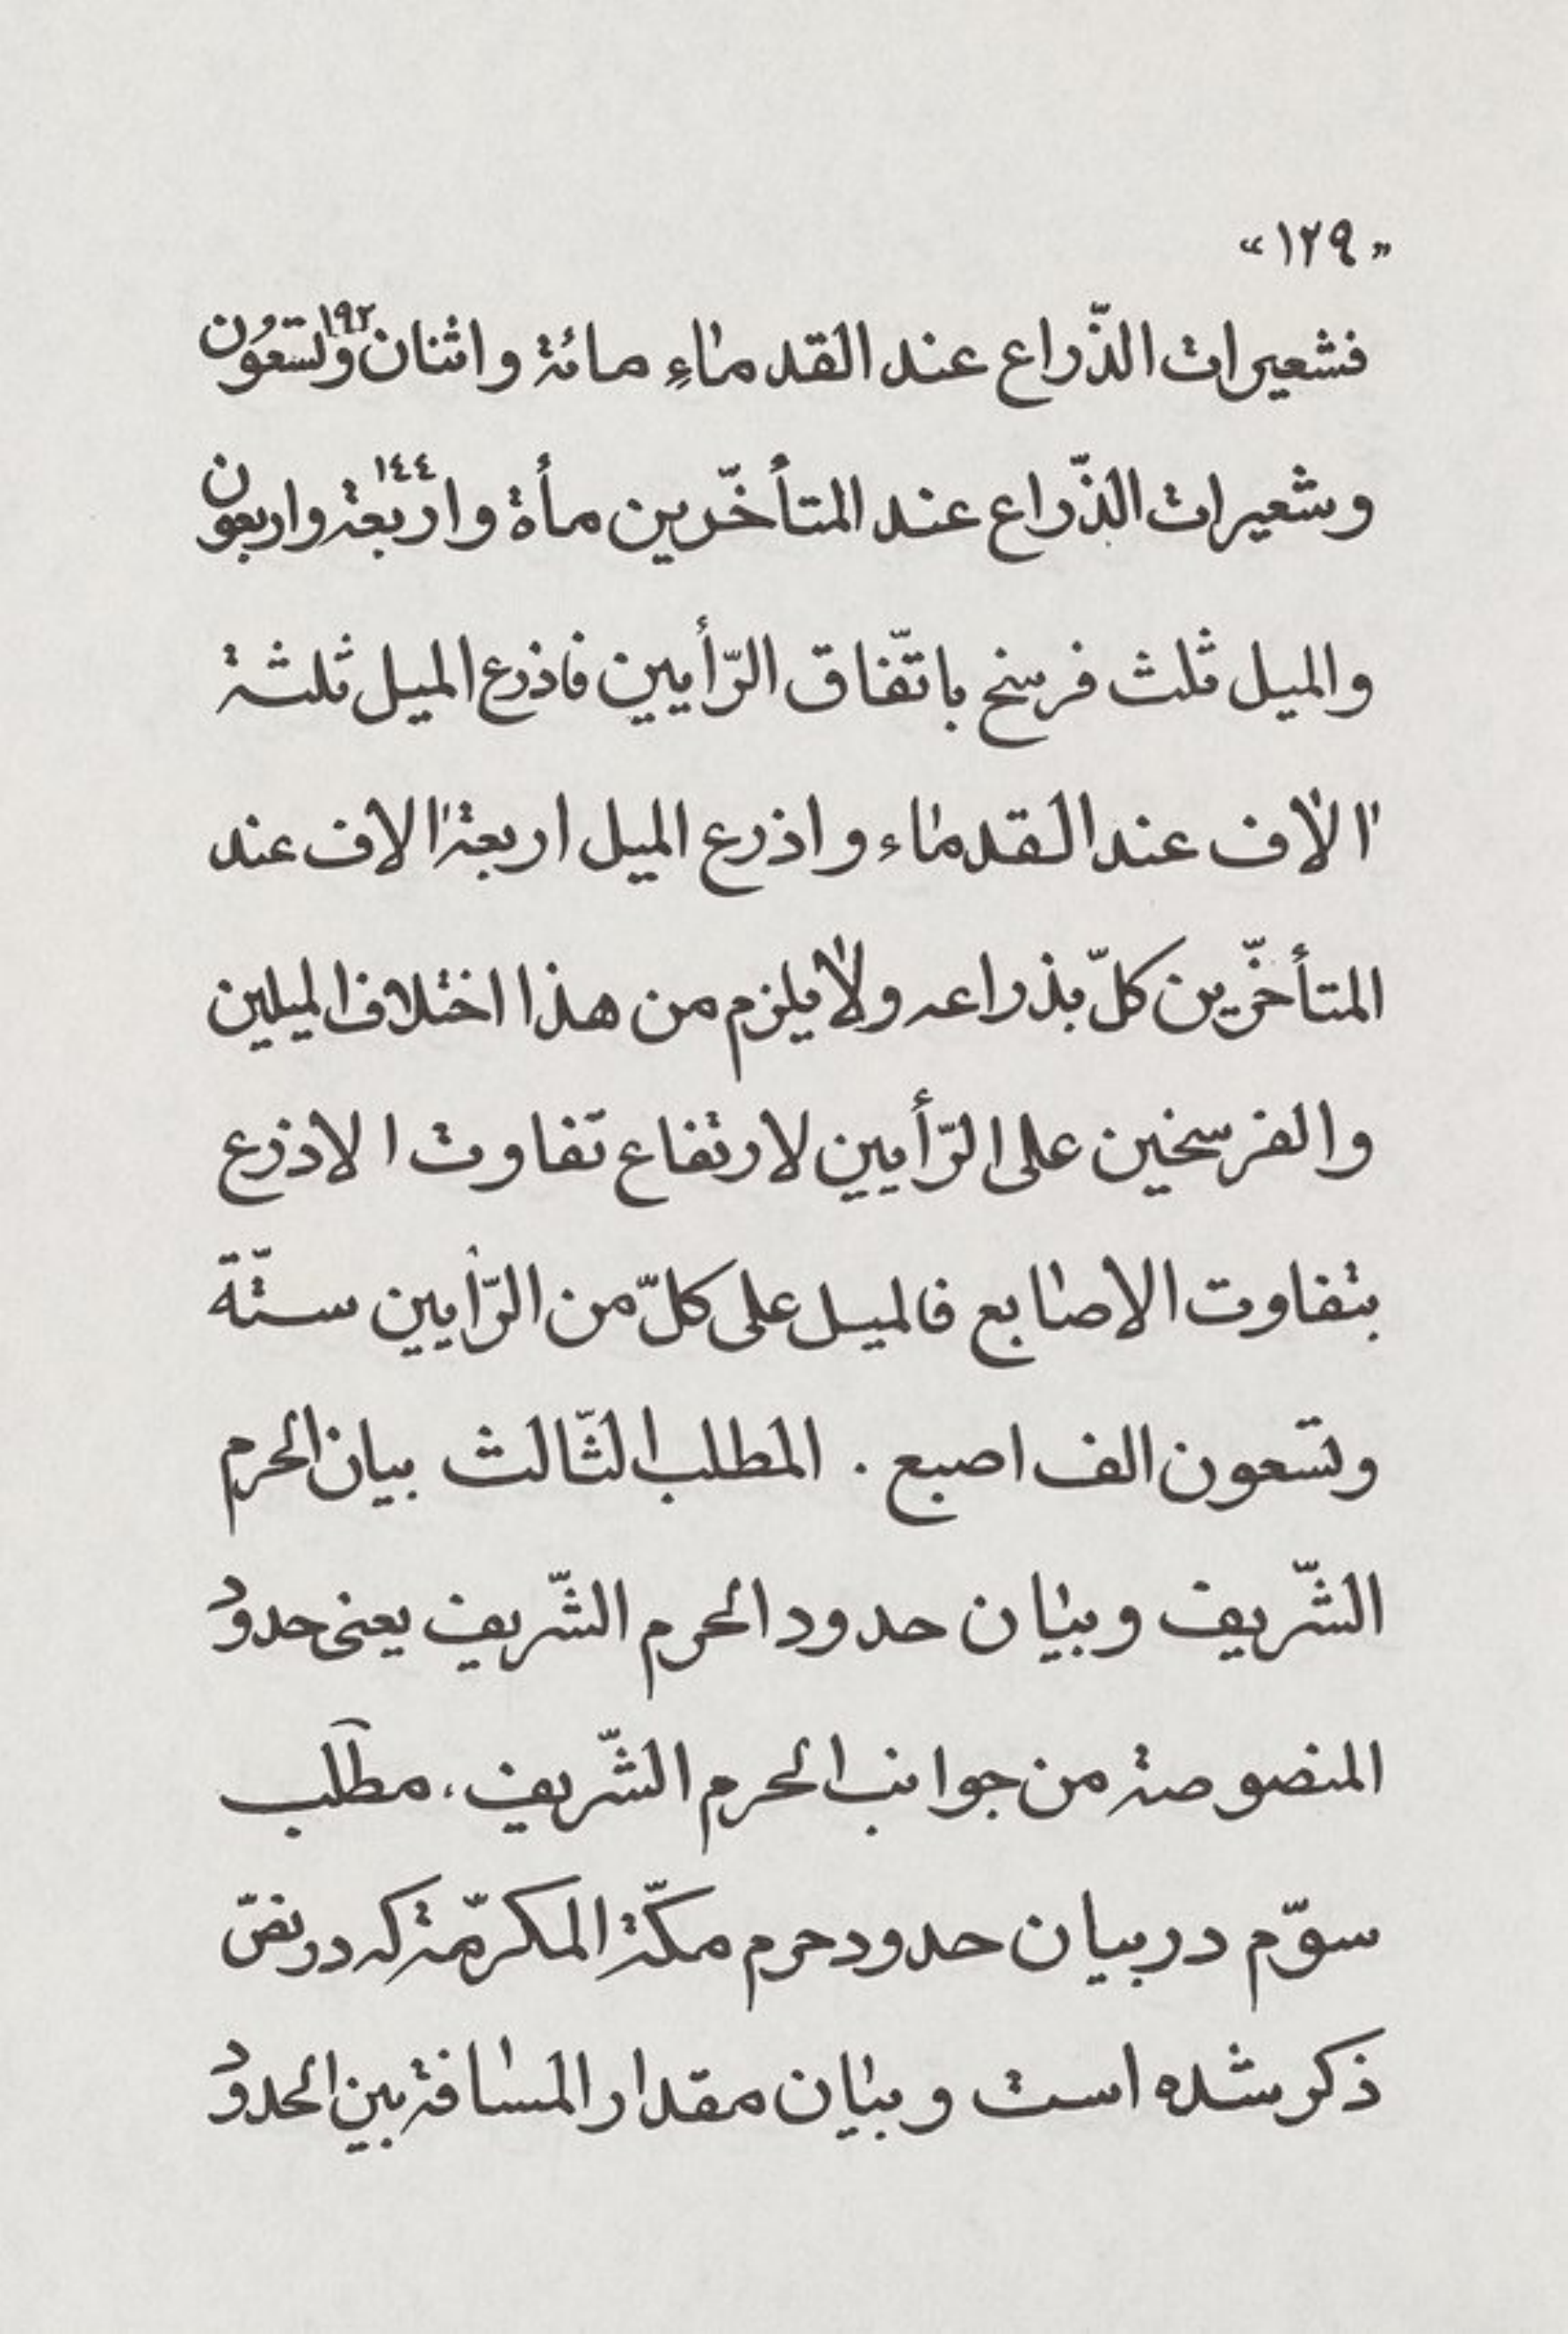 «١٢٩»
فشعيرات الذّراع عند القدماءِ مائة واثنان ١٩٢ وتسعُون
وشعيرات الذّراع عند المتأخّرين مأة واربعة ١٤٤ واربعون
والميل ثلث فرسخ باتّفاق الرّأيين فاذرع الميل ثلثة
الاف عند القدماء واذرع الميل اربعة الاف عند
المتأخّرين كلّ بذراعه ولا يلزم من هذا اختلاف الميلين
والفرسخين على الرّأيين لارتفاع تفاوت الاذرع
بتفاوت الاصابع فالميل على كلّ من الرّأيين ستّة
وتسعون الف اصبع . المطلب الثّالث بيان الحرم
الشّريف وبيان حدود الحرم الشّريف يعنى حدود
المنصوصة من جوانب الحرم الشّريف، مطلب
سوّم در بيان حدود حرم مكّة المكرّمة كه در نصّ
ذكر شده است وبيان مقدار المسافة بين الحدود